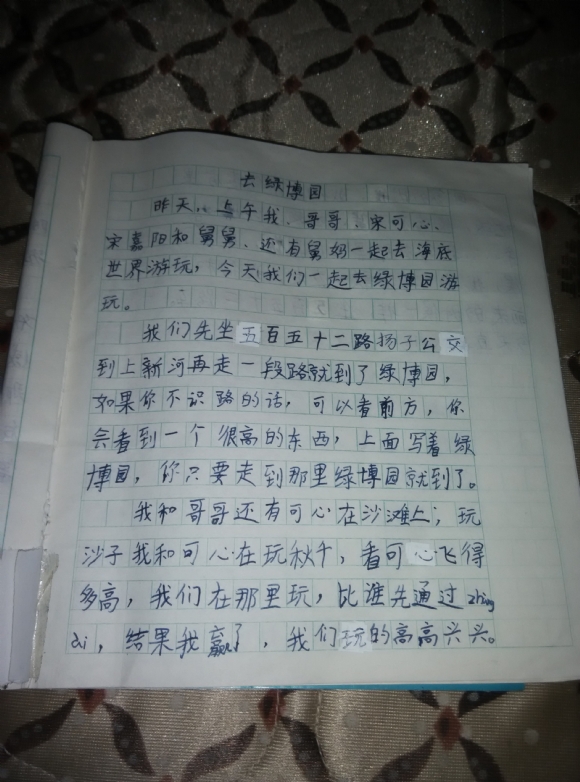 去绿博园
昨天,上午我、哥哥、宋可心、
宋嘉阳和舅舅、还有舅奶一起去海底
世界游玩,今天我们一起去绿博园游
玩。
我们先坐五百五十二路扬子公交
到上新河再走一段路就到了绿博园,
如果你不识路的话,可以看前方,你
会看到一个很高的东西,上面写着绿
博园,你只要走到那里绿博园就到了。
我和哥哥还有可心在沙滩上;玩
沙子我和可心在玩秋千,看可心飞得
多高,我们在那里玩,比谁先通过zhang
ai,结果我赢了,我们玩的高高兴兴。